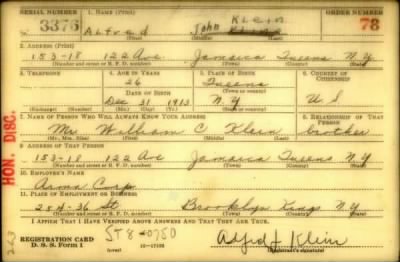 SERIAL NUMBER 1. NAME (Print) ORDER NUMBER
3376 Alfred John Klein 78
2. ADDRESS (Print)
153-18 122 Ave Jamaica Queens N.Y.
(Number and street or R. F. D. number) (Town) (County) (State)
3. TELEPHONE 4. AGE IN YEARS 5. PLACE OF BIRTH 6. COUNTRY OF CITIZENSHIP
26 Queens
DATE OF BIRTH (Town or county)
Dec 31 1913 N Y U S
(Exchange) (Number) (Mo.) (Day) (Yr.) (State or country)
7. NAME OF PERSON WHO WILL ALWAYS KNOW YOUR ADDRESS 8. RELATIONSHIP OF THAT PERSON
Mr. William C Klein brother
(Mr., Mrs., Miss) (First) (Middle) (Last)
9. ADDRESS OF THAT PERSON
153-18 122 Ave Jamaica Queens N.Y.
(Number and street or R. F. D. number) (Town) (County) (State)
10. EMPLOYER'S NAME
Arma Corp.
11. PLACE OF EMPLOYMENT OR BUSINESS
254-36 St Brooklyn Kings N.Y.
(Number and street or R. F. D. number) (Town) (County) (State)
I AFFIRM THAT I HAVE VERIFIED ABOVE ANSWERS AND THAT THEY ARE TRUE.
REGISTRATION CARD
D. S. S. Form 1 (over) 16-17105
ST 8-0750
Alfred J Klein
HON. DISC.